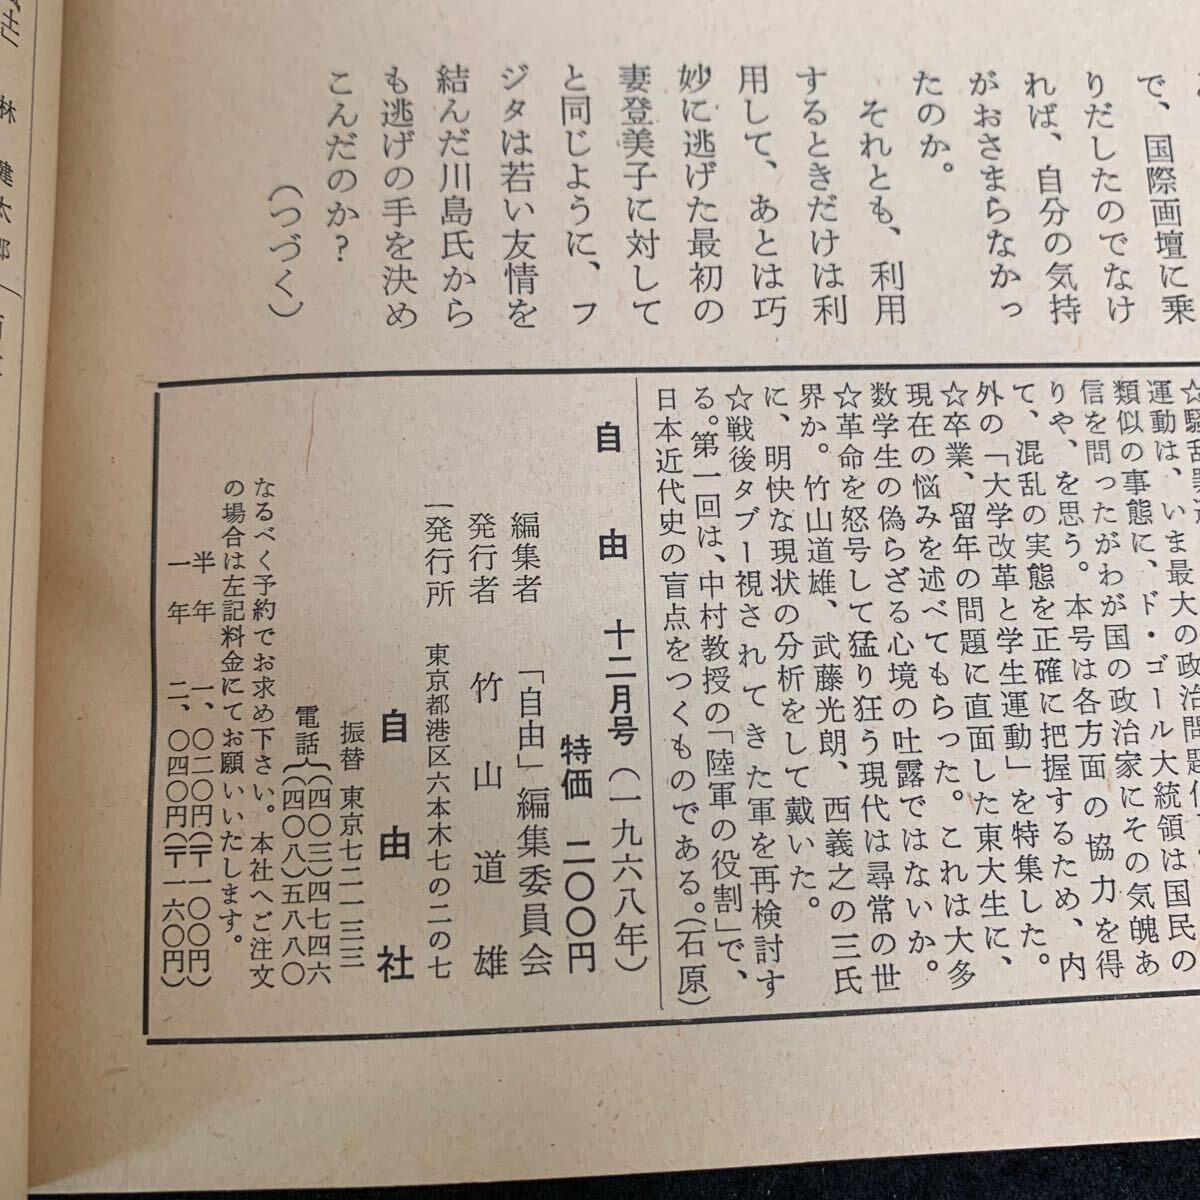 で、国際画壇に乗
りだしたのでなけ
れば、自分の気持
がおさまらなかっ
たのか。
それとも、利用
するときだけは利
用して、あとは巧
妙に逃げた最初の
妻登美子に対して
と同じように、フ
ジタは若い友情を
結んだ川島氏から
も逃げの手を決め
こんだのか？
（つづく）
運動は、いま最大の政治問題
類似の事態に、ド・ゴール大統領は国民の
信を問ったがわが国の政治家にその気魄あ
りや、を思う。本号は各方面の協力を得
て、混乱の実態を正確に把握するため、内
外の「大学改革と学生運動」を特集した。
☆卒業、留年の問題に直面した東大生に、
現在の悩みを述べてもらった。これは大多
数学生の偽らざる心境の吐露ではないか。
☆革命を怒号して猛り狂う現代は尋常の世
界か。竹山道雄、武藤光朗、西義之の三氏
に、明快な現状の分析をして戴いた。
☆戦後タブー視されてきた軍を再検討す
る。第一回は、中村教授の「陸軍の役割」で、
日本近代史の盲点をつくものである。（石原）
自由 十二月号（一九六八年）
特価 二〇〇円
編集者 「自由」編集委員会
発行者 竹山道雄
発行所 東京都港区六本木七の二の七
自由社
振替 東京七二一三三
電話（四〇三）四七四六
（四〇八）五八八〇
なるべく予約でお求め下さい。本社へご注文
の場合は左記料金にてお願いいたします。
半年 一、〇二〇円（〒一〇〇円）
一年 二、〇四〇円（〒一六〇円）
林健太郎